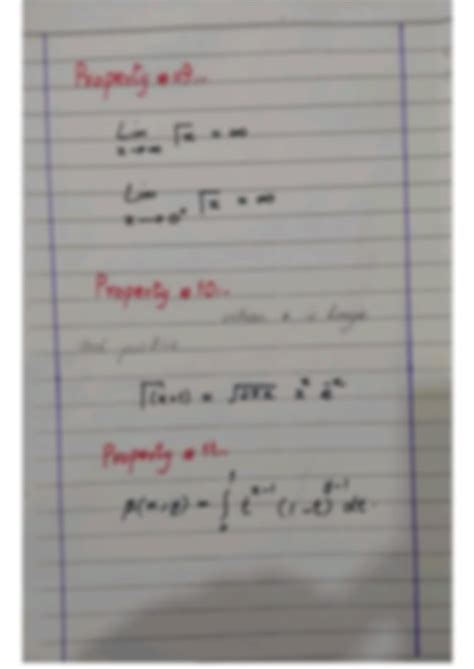 Property # 9...
Lim x→∞ Γx = ∞
Lim x→0⁺ Γx = ∞
Property # 10...
when x is large
and positive
Γ(x+1) = √2πx xˣ e⁻ˣ
Property # 11...
β(x,y) = ∫₀¹ t^(x-1) (1-t)^(y-1) dt.